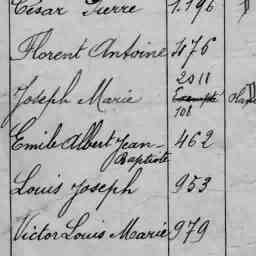 César Pierre 1.196
Florent Antoine 476
2011
Joseph Marie Exempté
108
Emile Albert Jean- 462
Baptiste
Louis Joseph 953
Victor Louis Marie 979